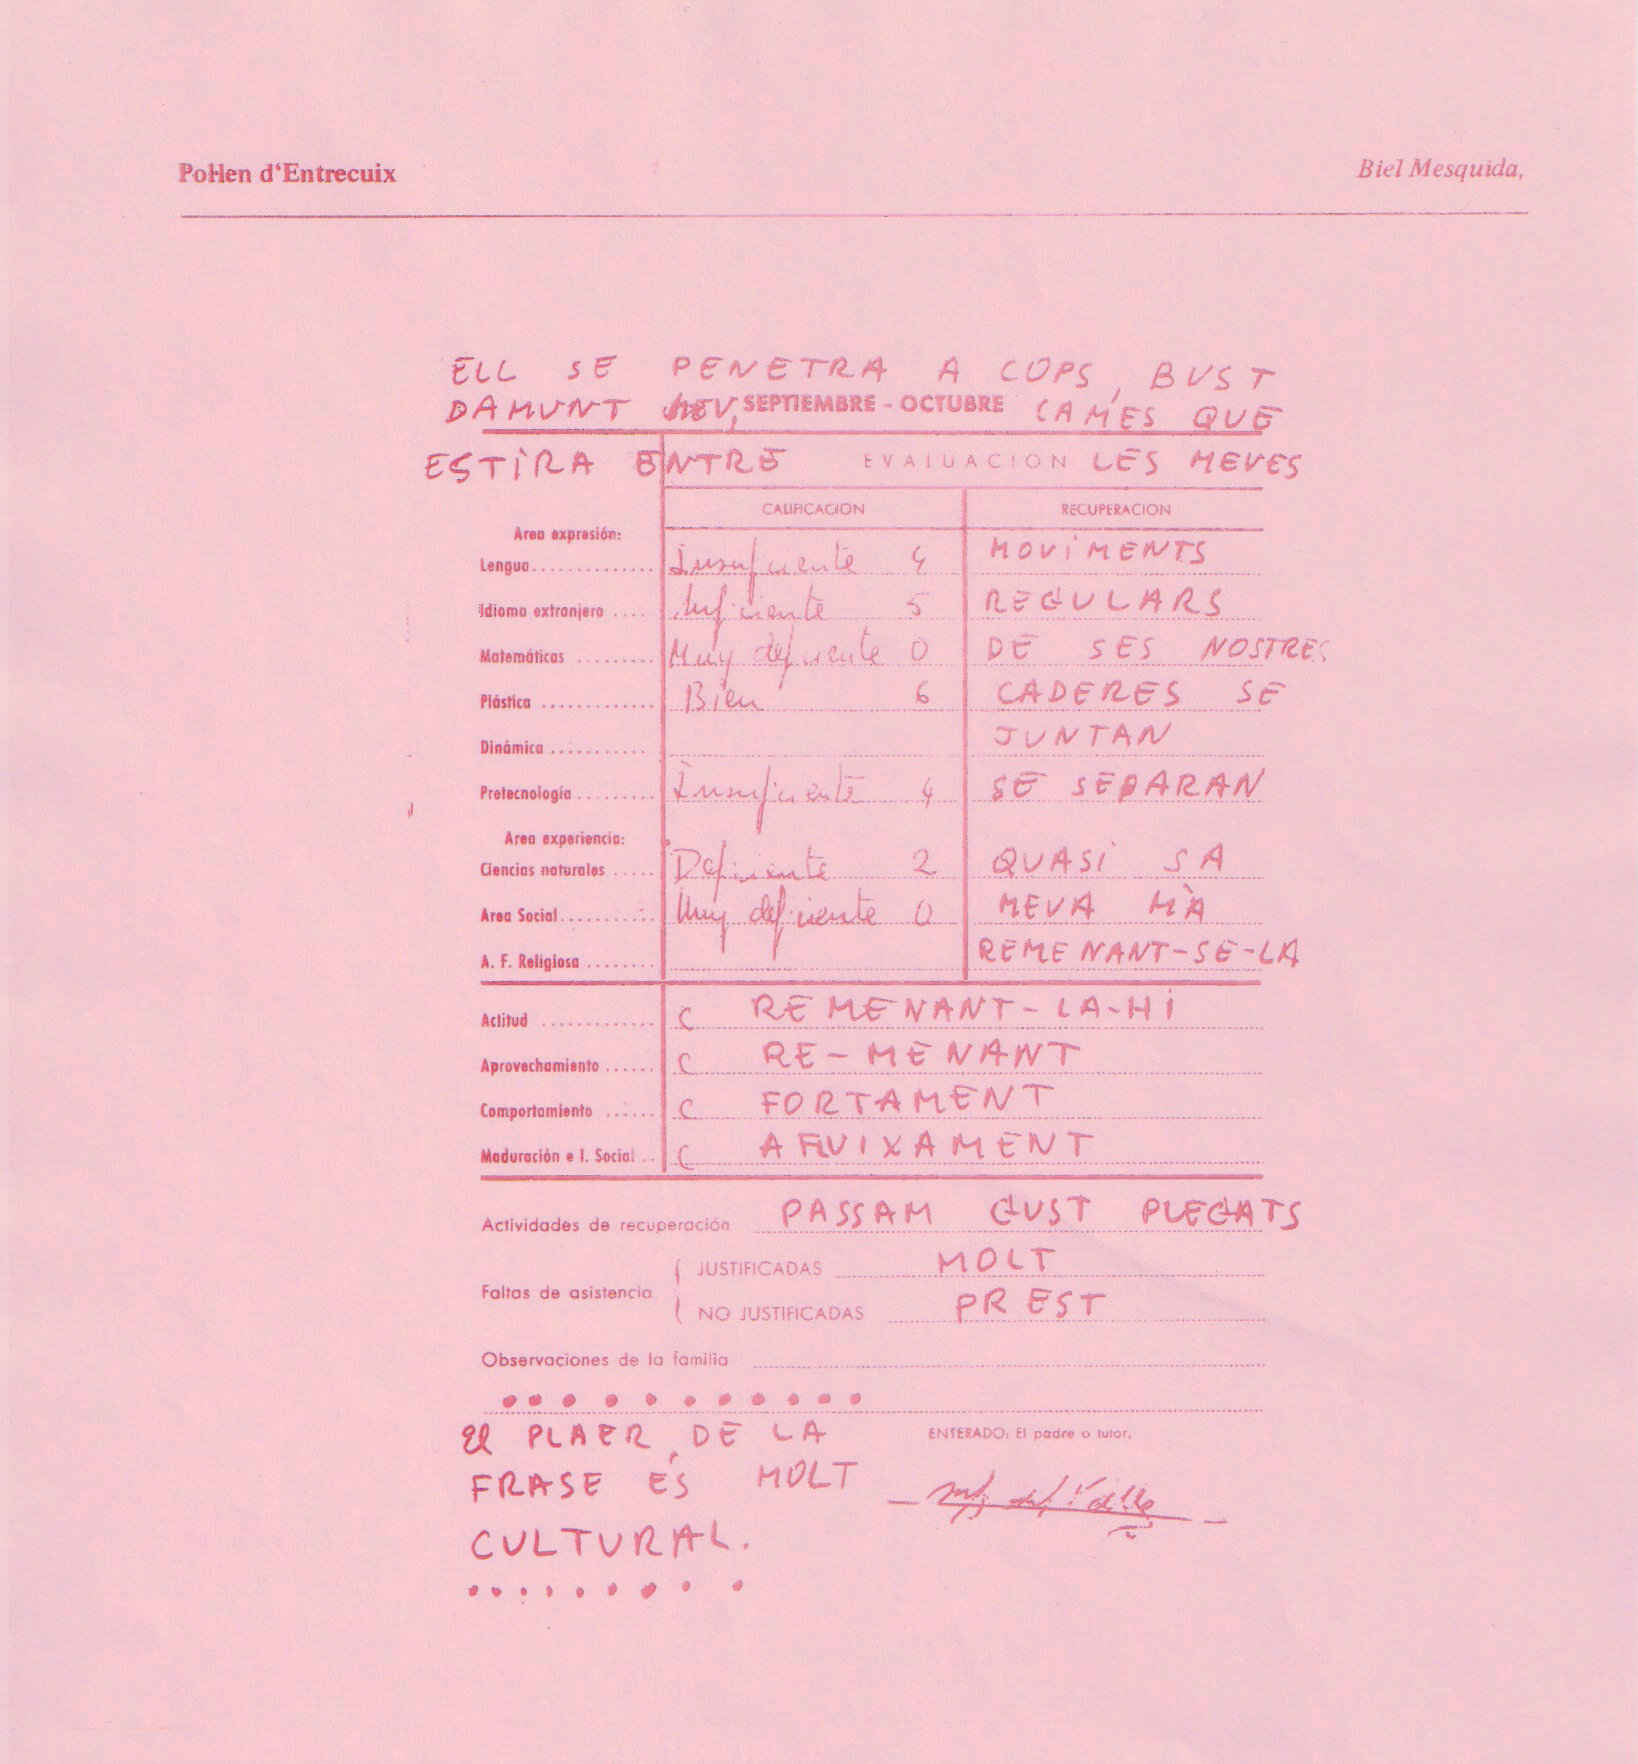 Pol·len d'Entrecuix Biel Mesquida,
ELL SE PENETRA A COPS, BUST
DAMUNT MEU, SEPTIEMBRE - OCTUBRE CAMES QUE
ESTIRA ENTRE EVALUACION LES MEVES
CALIFICACION RECUPERACION
Area expresión:
Lengua Insuficiente 4 MOVIMENTS
Idioma extranjero Suficiente 5 REGULARS
Matemáticas Muy deficiente 0 DE SES NOSTRES
Plástica Bien 6 CADERES SE
Dinámica JUNTAN
Pretecnología Insuficiente 4 SE SEPARAN
Area experiencia:
Ciencias naturales Deficiente 2 QUASI SA
Area Social Muy deficiente 0 MEVA MÀ
A. F. Religiosa REMENANT-SE-LA
Actitud C REMENANT-LA-HI
Aprovechamiento C RE-MENANT
Comportamiento C FORTAMENT
Maduración e I. Social C AFLUIXAMENT
Actividades de recuperación PASSAM GUST PLEGATS
Faltas de asistencia
JUSTIFICADAS MOLT
NO JUSTIFICADAS PREST
Observaciones de la familia
El PLAER DE LA ENTERADO: El padre o tutor,
FRASE ÉS MOLT
CULTURAL.